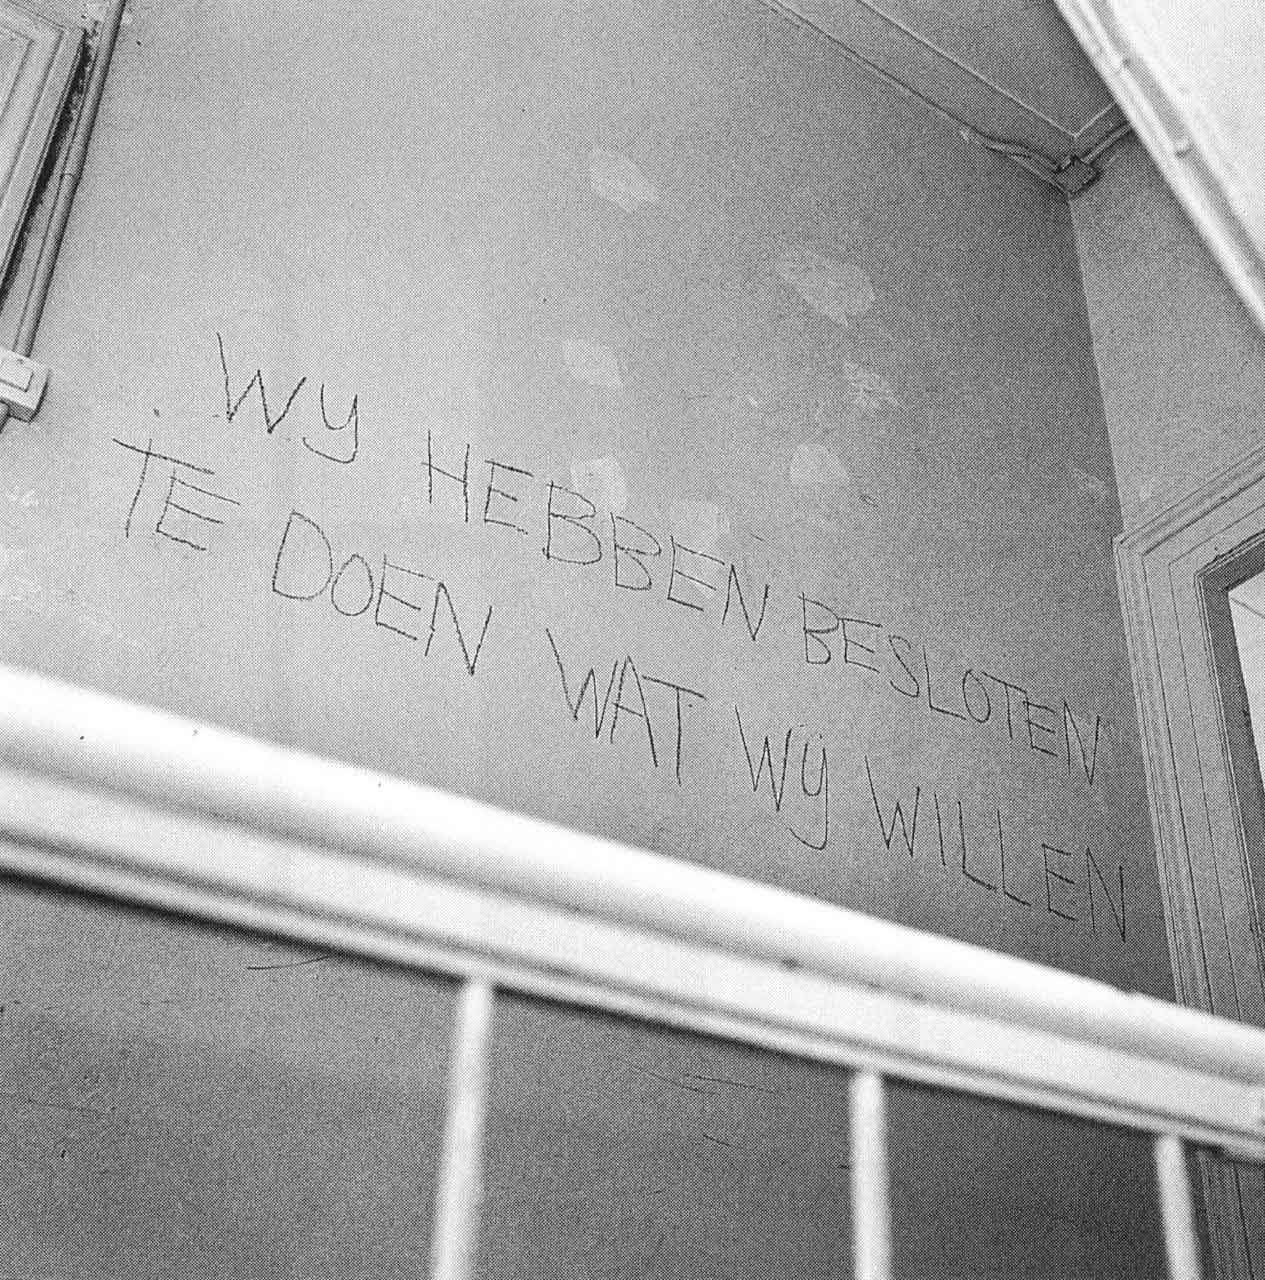 WY HEBBEN BESLOTEN
TE DOEN WAT Wÿ WILLEN